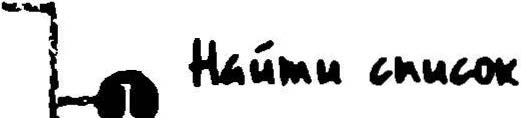 1 Найти список